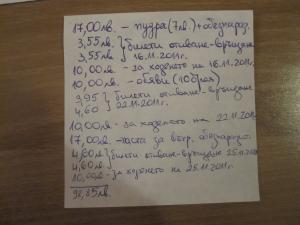 17,00лв. – пудра (7лв.) + обезпараз.
3,55лв. } билети отиване-връщане
3,55лв. 16.11.2011г.
10,00лв. – за ходенето на 16.11.2011г.
10,00лв. – обяви (10броя)
3,95 } билети отиване-връщане
4,60 22.11.2011г.
10,00лв. – за ходенето на 22.11.2011г.
17,00лв. – паста за вътр. обезпараз.
4,60лв } билети отиване-връщане 25.11.2011г.
4,60лв.
10,00лв – за ходенето на 25.11.2011г.
98,85лв.